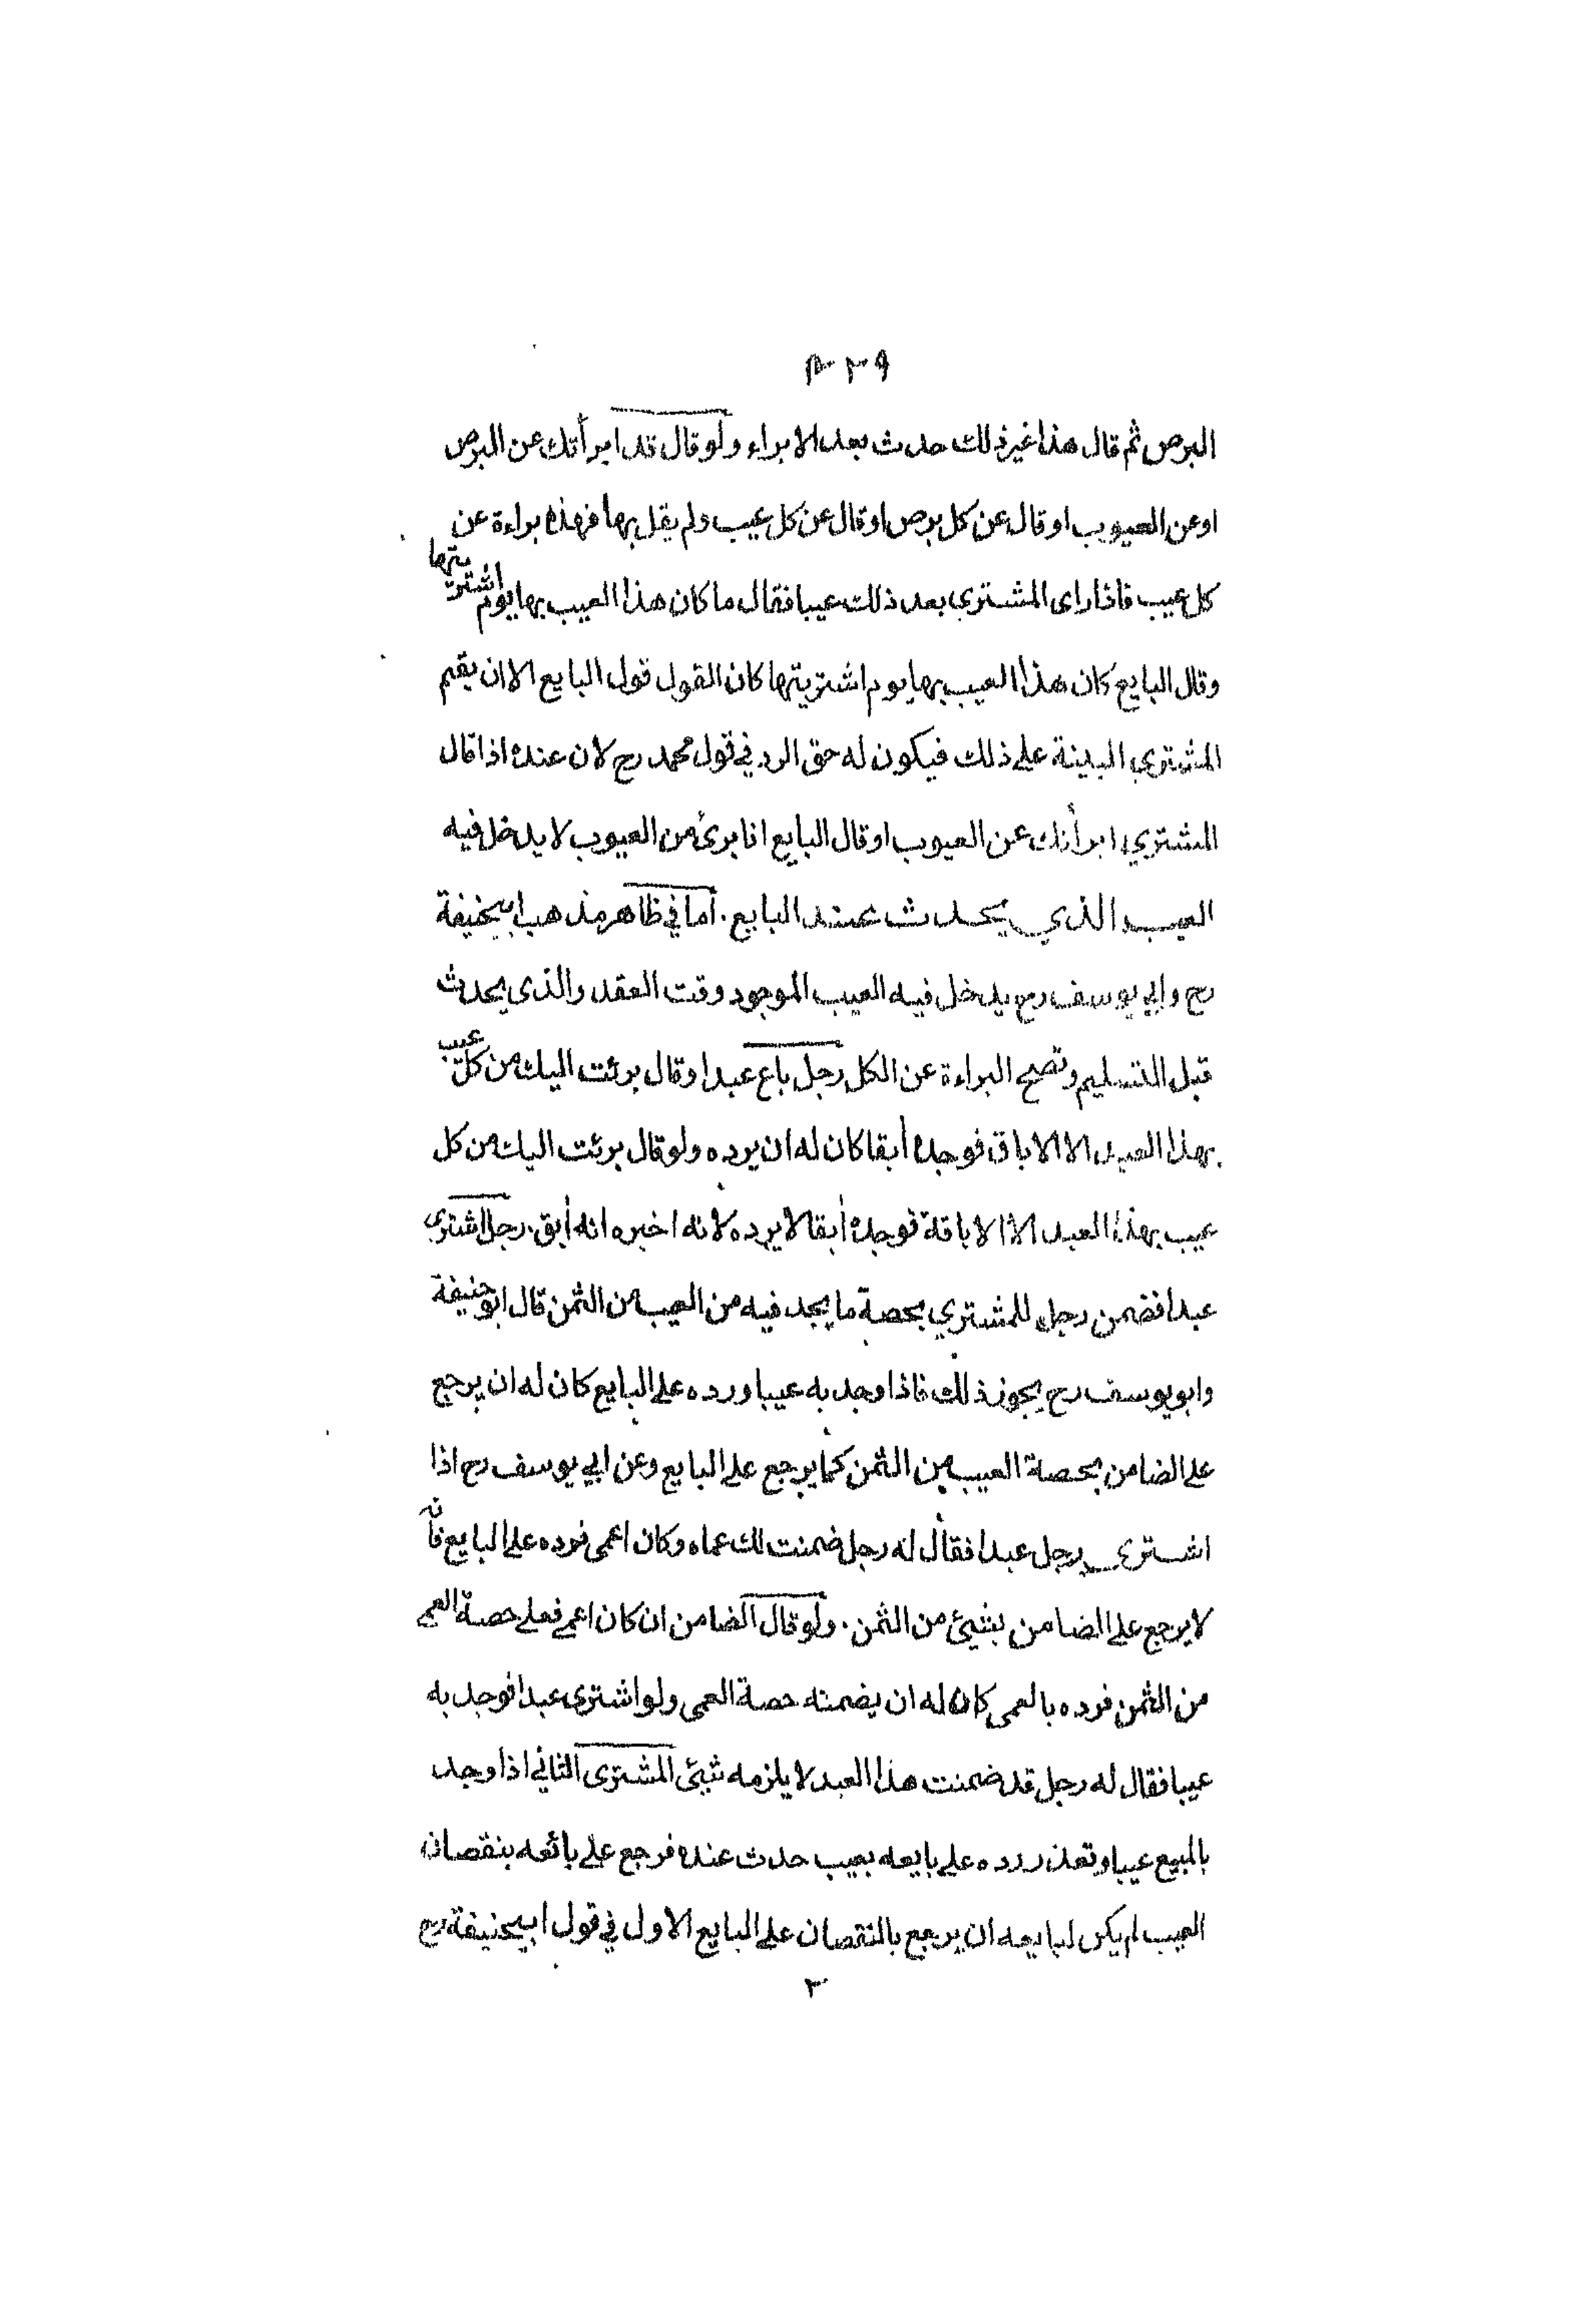 البرص ثم قال هذا غير ذلك حدث بعد الابراء ولو قال قد ابرأتك عن البرص
او عن العيوب او قال عن كل برص او قال عن كل عيب ولم يقل بها فهذه براءة عن
كل عيب فاذا راى المشتري بعد ذلك عيبا فقال ما كان هذا العيب بها يوم اشتريتها
وقال البايع كان هذا العيب بها يوم اشتريتها كان القول قول البايع الا ان يقيم
المشتري البينة على ذلك فيكون له حق الرد في قول محمد رح لان عنده اذا قال
المشتري ابرأتك عن العيوب او قال البايع انا برئ من العيوب لا يدخل فيه
العيب الذي يحدث عند البايع . أما في ظاهر مذهب ابيحنيفة
رح وابي يوسف رح يدخل فيه العيب الموجود وقت العقد والذى يحدث
قبل التسليم وتصح البراءة عن الكل رجل باع عبدا وقال برئت اليك من كل عيب
بهذا العبد الا الاباق فوجده أبقا كان له ان يرده ولو قال برئت اليك من كل
عيب بهذا العبد الا الاباقة فوجده أبقا لا يرده لانه اخبره انه أبق . رجل اشترى
عبدا فضمن رجل للمشتري بحصة ما يجد فيه من العيب من الثمن قال ابو حنيفة
وابو يوسف رح يجوز ذلك فاذا وجد به عيبا ورده على البايع كان له ان يرجع
على الضامن بحصة العيب من الثمن كما يرجع على البايع وعن ابي يوسف رح اذا
اشترى رجل عبدا فقال له رجل ضمنت لك عماه وكان اعمى فرده على البايع فانه
لا يرجع على الضامن بشيئ من الثمن . ولو قال الضامن ان كان اعمى فعلي حصة العمى
من الثمن فرده بالعمى كان له ان يضمنه حصة العمى ولو اشترى عبدا فوجد به
عيبا فقال له رجل قد ضمنت هذا العبد لا يلزمه شيئ المشترى الثاني اذا وجد
بالمبيع عيبا وتعذر رده على بايعه بعيب حدث عنده فرجع على بائعه بنقصان
العيب لم يكن لبايعه ان يرجع بالنقصان على البايع الاول في قول ابيحنيفة رح